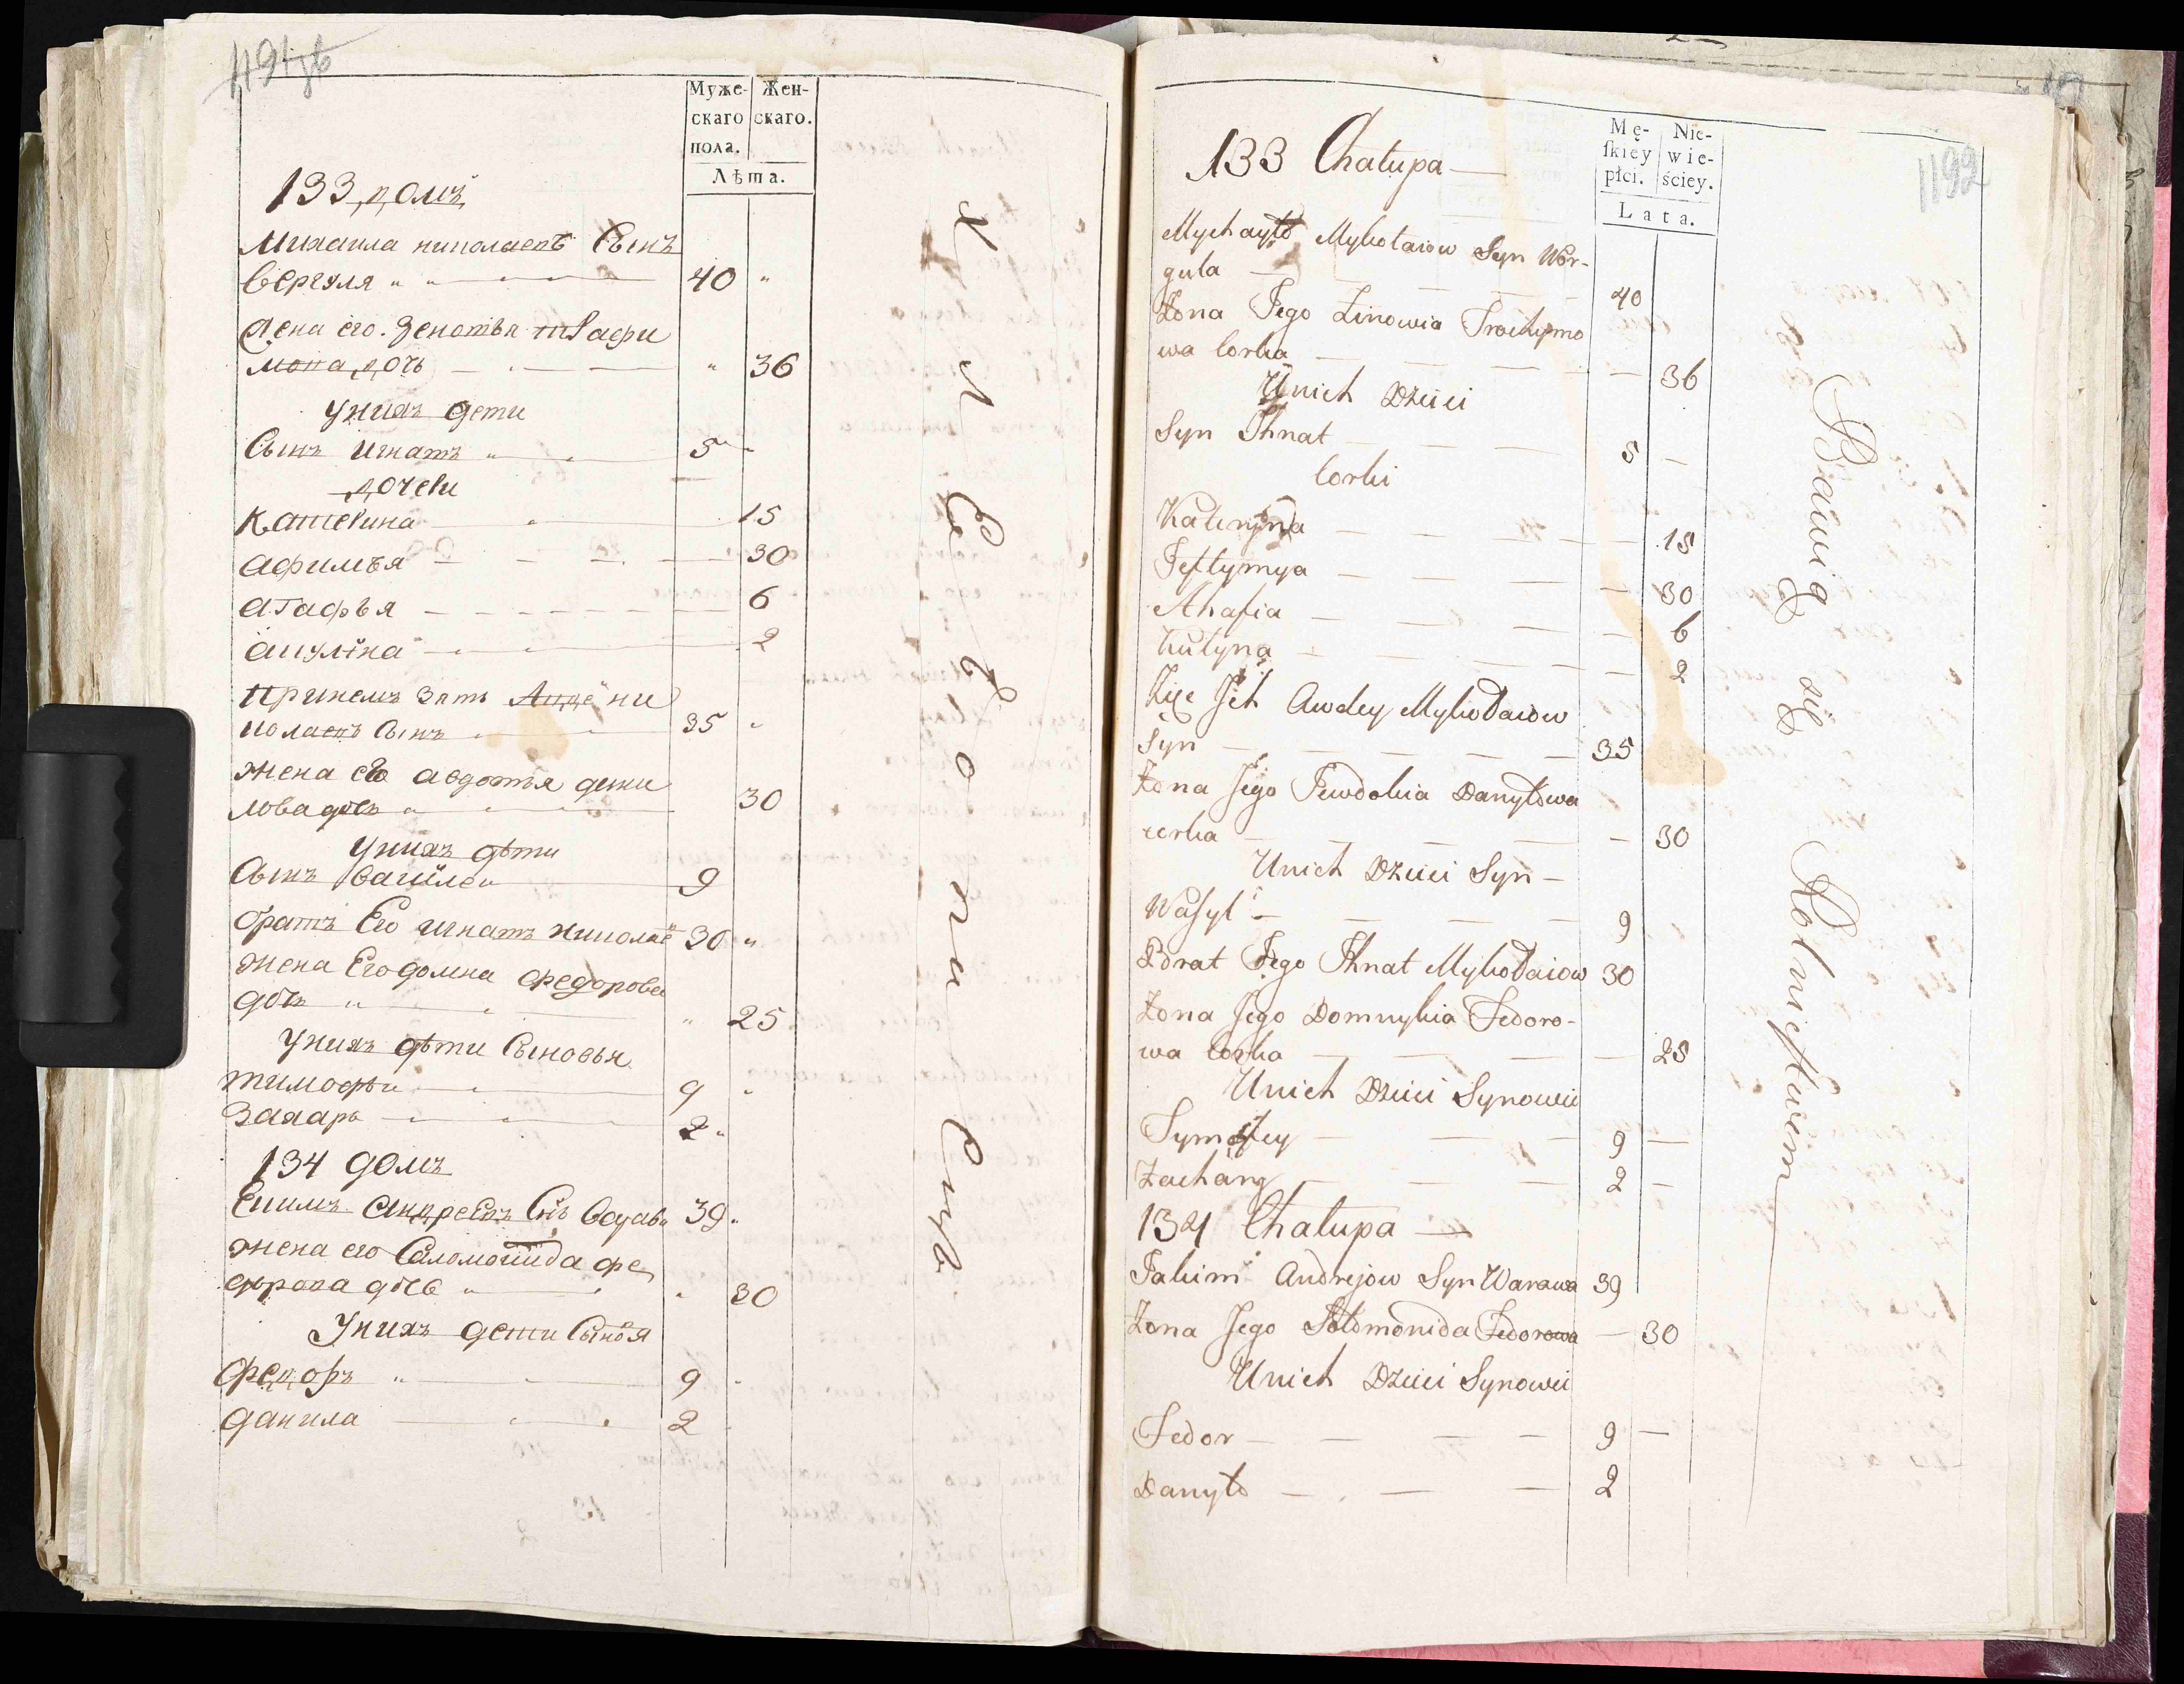 Муже-
скаго
пола.
Жен-
скаго.
Лѣта.
133 домъ
Михаила николаевъ Сынъ
Вергуля 40
жена его Зеновья
дочь 36
Унихъ дети
Сынъ игнатъ 5
дочеви
Катерина 15
афимъя 30
агафья 6
акулина 2
Зять Авдей ни
колаевъ Сынъ 35
жена его авдотья дани
лова дочь 30
унихъ дѣти
Сынъ василеи 9
братъ Его игнатъ николае 30
жена Его домна федорова
дочь 25
Унихъ дѣти Сыновья
тимофѣи 9
Захаръ 2
134 домъ
Екимъ андреевъ Снъ 39
жена его Саломонида фе
дорова дочь 30
Унихъ дети Снвя
Федоръ 9
данила 2
Хлебопашцы
1192
Mę-
ſkiey
płci.
Nie-
wie-
ściey.
Lata.
133 Chałupa
Mychayło Mykołaiow Syn Wer-
guła 40
Żona Jego Zinowia Trochymo
wa Corka 36
Unich Dzieci
Syn Ihnat 5
Corki
Kateryna 15
Jeftymya 30
Ahafia 6
Kulyna 2
Zięć Ich Awdey Mykołaiow
Syn 35
Żona Jego Jewdokia Danyłowa
corka 30
Unich Dzieci Syn
Wasyl 9
Brat Jego Ihnat Mykołaiow 30
Żona Jego Domnykia Fedoro-
wa Corka 25
Unich Dzieci Synowie
Tymofey 9
Zachary 2
134 Chałupa
Jakim Andrejow Syn Warawa 39
Żona Jego Sołomonida Fedorowa 30
Unich Dzieci Synowie
Fedor 9
Danyło 2
Bawią się Rolnictwem